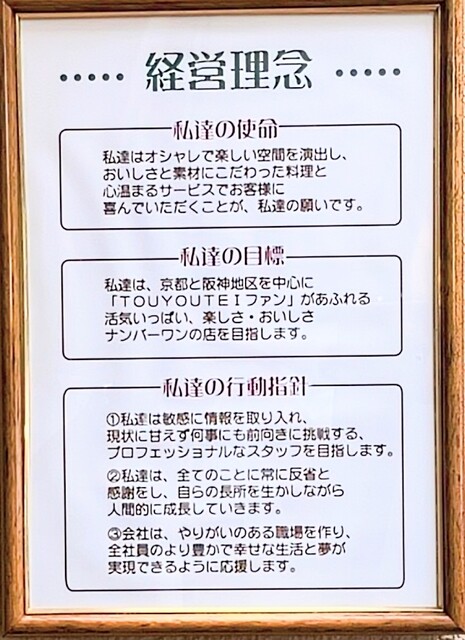 ····· 経営理念 ·····
私達の使命
私達はオシャレで楽しい空間を演出し、
おいしさと素材にこだわった料理と
心温まるサービスでお客様に
喜んでいただくことが、私達の願いです。
私達の目標
私達は、京都と阪神地区を中心に
「ＴＯＵＹＯＵＴＥＩファン」があふれる
活気いっぱい、楽しさ・おいしさ
ナンバーワンの店を目指します。
私達の行動指針
①私達は敏感に情報を取り入れ、
現状に甘えず何事にも前向きに挑戦する、
プロフェッショナルなスタッフを目指します。
②私達は、全てのことに常に反省と
感謝をし、自らの長所を生かしながら
人間的に成長していきます。
③会社は、やりがいのある職場を作り、
全社員のより豊かで幸せな生活と夢が
実現できるように応援します。